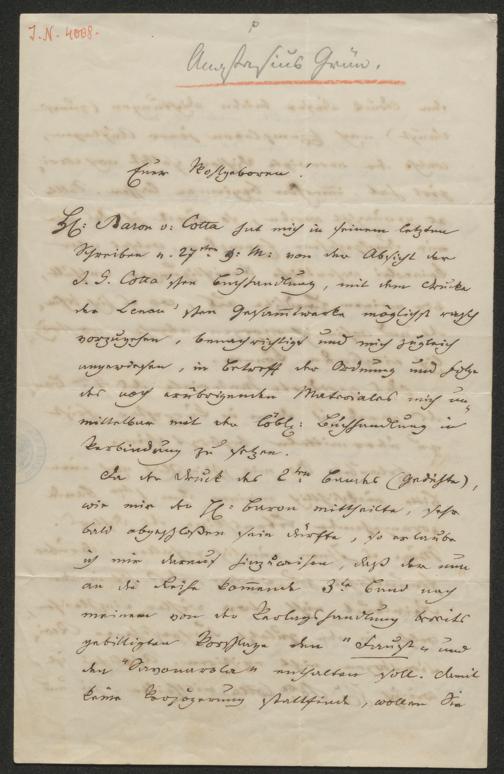 I. N. 4008.
Anastasius Grün.
Euer Wohlgeboren!
H: Baron v: Cotta hat mich in seinem letzten
Schreiben v. 27ten v: M: von der Absicht der
J. G. Cotta'schen Buchhandlung, mit dem Drucke
der Lenau'schen Gesammtwerke möglichst rasch
vorzugehen, benachrichtigt und mich zugleich
angewiesen, in Betreff der Ordnung und Folge
des noch erübrigenden Materiales mich un„
mittelbar mit der löbl: Buchhandlung in
Verbindung zu setzen.
Da der Druck des 2ten Bandes (Gedichte),
wie mir der H: Baron mittheilte, sehr
bald abgeschloßen sein dürfte, so erlaube
ich mir darauf hinzuweisen, daß der nun
an die Reihe kommende 3te Band nach
meinem von der Verlagshandlung bereits
gebilligten Vorschlage den "Faust" und
den "Savonarola" enthalten soll. Damit
keine Verzögerung stattfinde, wollen Sie